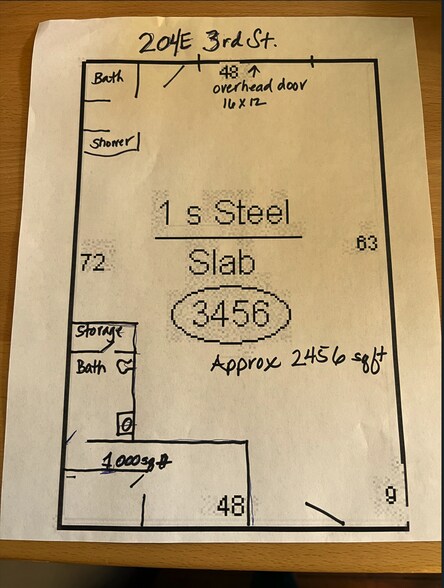 204E 3rd St.
Bath
48 ↑
overhead door
16 x 12
Shower
1 s Steel
63
72
Slab
3456
Storage
Approx 2456 sqft
Bath
1,000 sqft
48
9